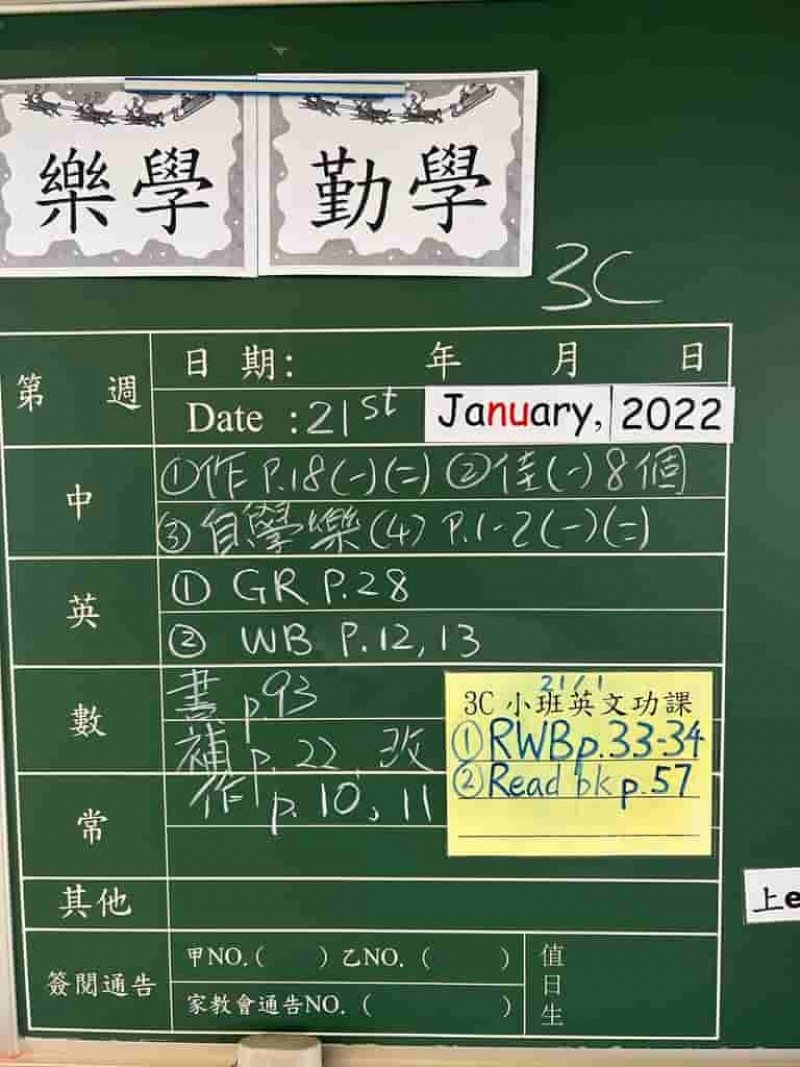 樂學 勤學
3C
第 週 日期: 年 月 日
Date :21st January, 2022
中 ①作 P.18(一)(二) ②佳(一)8個
③自學樂(4) P.1-2(一)(二)
英 ① GR P.28
② WB P.12,13
數 書 p.93
補 p.22、改
常 作 p.10、11
21/1
3C 小班英文功課
①RWBp.33-34
②Read bk p.57
其他
上e
簽閱通告 甲NO.( ) 乙NO. ( )
家教會通告NO. ( )
值日生